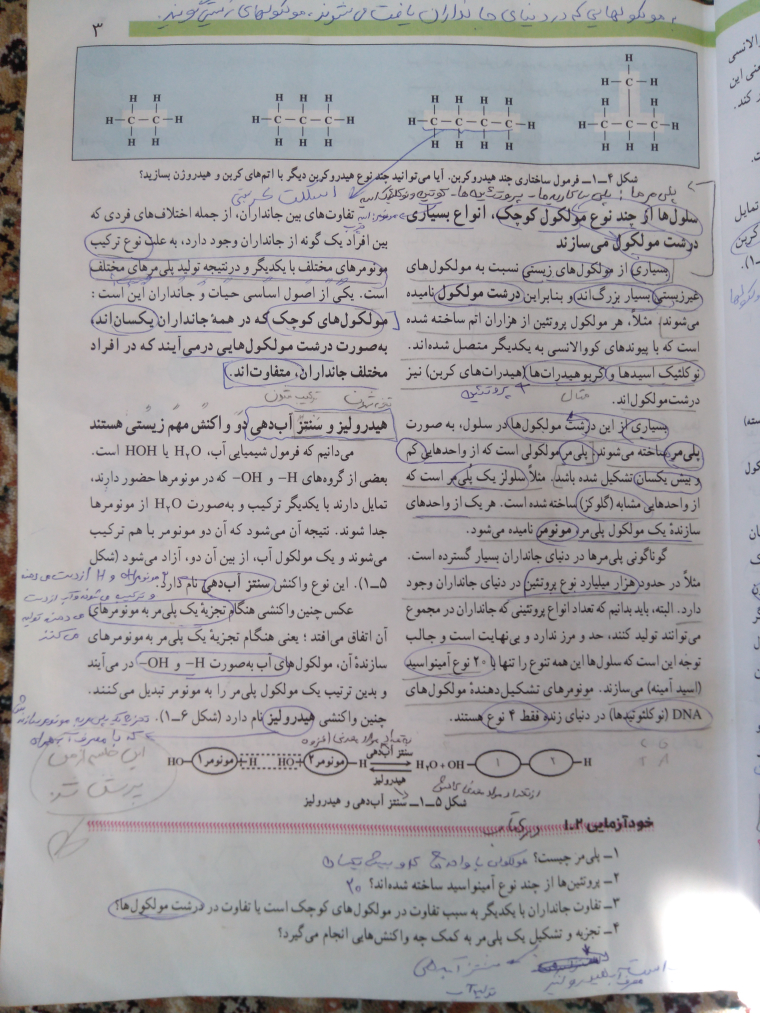 به مولکولهایی که در دنیای جانداران یافت می شوند، مولکولهای زیستی گویند.
۳
H H
H—C—C—H
H H
H H H
H—C—C—C—H
H H H
H H H H
H—C—C—C—C—H
H H H H
H
H—C—H
H H
H—C—C—C—H
H H H
شکل ۴ــ۱ــ فرمول ساختاری چند هیدروکربن. آیا می‌توانید چند نوع هیدروکربن دیگر با اتم‌های کربن و هیدروژن بسازید؟
پلی مرها : پلی ساکاریدها - پروتئین ها -
سلول‌ها از چند نوع مولکول کوچک، انواع بسیاری
درشت مولکول می‌سازند
بسیاری از مولکول‌های زیستی نسبت به مولکول‌های
غیرزیستی بسیار بزرگ‌اند و بنابراین درشت مولکول نامیده
می‌شوند. مثلاً، هر مولکول پروتئین از هزاران اتم ساخته شده
است که با پیوندهای کووالانسی به یکدیگر متصل شده‌اند.
نوکلئیک اسیدها و کربوهیدرات‌ها (هیدرات‌های کربن) نیز
درشت‌مولکول‌اند.
پروتئین
مثال
بسیاری از این درشت مولکول‌ها در سلول، به صورت
پلی‌مر ساخته می‌شوند. پلی‌مر مولکولی است که از واحدهایی کم
و بیش یکسان تشکیل شده باشد. مثلاً سلولز یک پلی‌مر است که
از واحدهایی مشابه (گلوکز) ساخته شده است. هر یک از واحدهای
سازندهٔ یک مولکول پلی‌مر، مونومر نامیده می‌شود.
گوناگونی پلی‌مرها در دنیای جانداران بسیار گسترده است.
مثلاً در حدود هزار میلیارد نوع پروتئین در دنیای جانداران وجود
دارد. البته، باید بدانیم که تعداد انواع پروتئینی که جانداران در مجموع
می‌توانند تولید کنند، حد و مرز ندارد و بی‌نهایت است و جالب
توجه این است که سلول‌ها این همه تنوع را تنها با ۲۰ نوع آمینواسید
(اسید آمینه) می‌سازند. مونومرهای تشکیل‌دهندهٔ مولکول‌های
DNA (نوکلئوتیدها) در دنیای زنده فقط ۴ نوع هستند.
تفاوت‌های بین جانداران، از جمله اختلاف‌های فردی که
بین افراد یک گونه از جانداران وجود دارد، به علت نوع ترکیب
مونومرهای مختلف با یکدیگر و درنتیجه تولید پلی‌مرهای مختلف
است. یکی از اصول اساسی حیات و جانداران این است :
مولکول‌های کوچک که در همهٔ جانداران یکسان‌اند،
به‌صورت درشت مولکول‌هایی درمی‌آیند که در افراد
مختلف جانداران، متفاوت‌اند.
هیدرولیز و سنتز آب‌دهی دو واکنش مهم زیستی هستند
می‌دانیم که فرمول شیمیایی آب، H۲O یا HOH است.
بعضی از گروه‌های H− و OH− که در مونومرها حضور دارند،
تمایل دارند با یکدیگر ترکیب و به‌صورت H۲O از مونومرها
جدا شوند. نتیجه آن می‌شود که آن دو مونومر با هم ترکیب
می‌شوند و یک مولکول آب، از بین آن دو، آزاد می‌شود (شکل
۵ــ۱). این نوع واکنش سنتز آب‌دهی نام دارد.
عکس چنین واکنشی هنگام تجزیهٔ یک پلی‌مر به مونومرهای
آن اتفاق می‌افتد ؛ یعنی هنگام تجزیهٔ یک پلی‌مر به مونومرهای
سازندهٔ آن، مولکول‌های آب به‌صورت H− و OH− در می‌آیند
و بدین ترتیب یک مولکول پلی‌مر را به مونومر تبدیل می‌کنند.
چنین واکنشی هیدرولیز نام دارد (شکل ۶ــ۱).
HO مونومر۱ H HO مونومر۲ H سنتز آب‌دهی هیدرولیز H۲O + OH ۱ ۲ H
شکل ۵ــ۱ــ سنتز آب‌دهی و هیدرولیز
خودآزمایی ۲ـ۱
۱ــ پلی‌مر چیست؟
۲ــ پروتئین‌ها از چند نوع آمینواسید ساخته شده‌اند؟ ۲۰
۳ــ تفاوت جانداران با یکدیگر به سبب تفاوت در مولکول‌های کوچک است یا تفاوت در درشت مولکول‌ها؟
۴ــ تجزیه و تشکیل یک پلی‌مر به کمک چه واکنش‌هایی انجام می‌گیرد؟
سنتز آبدهی